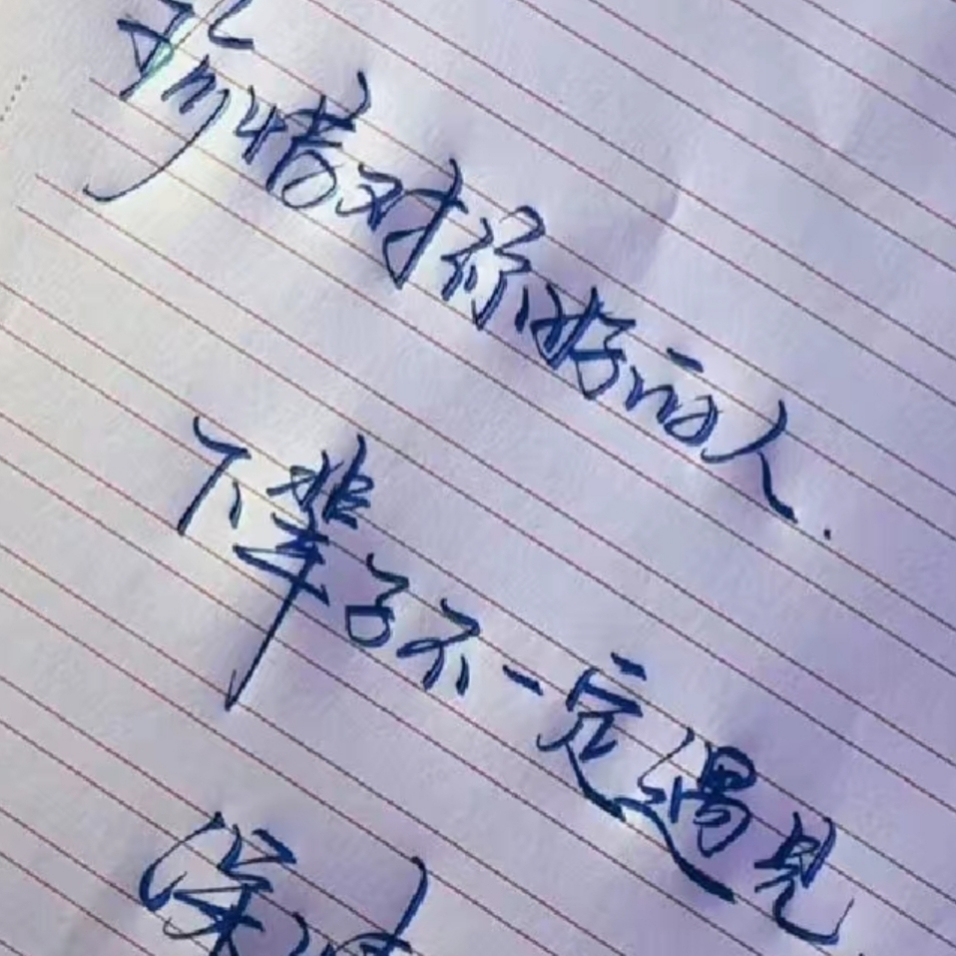 珍惜对你好的人.
下辈子不一定遇见.
深